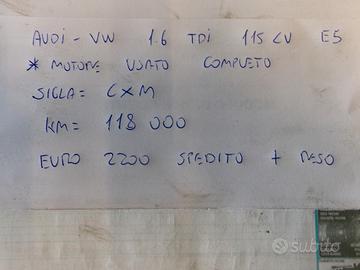 AUDI - VW 1.6 TDI 115 CV E5
* MOTORE USATO COMPLETO
SIGLA = CXM
KM = 118 000
EURO 2200 SPEDITO + RESO
subito